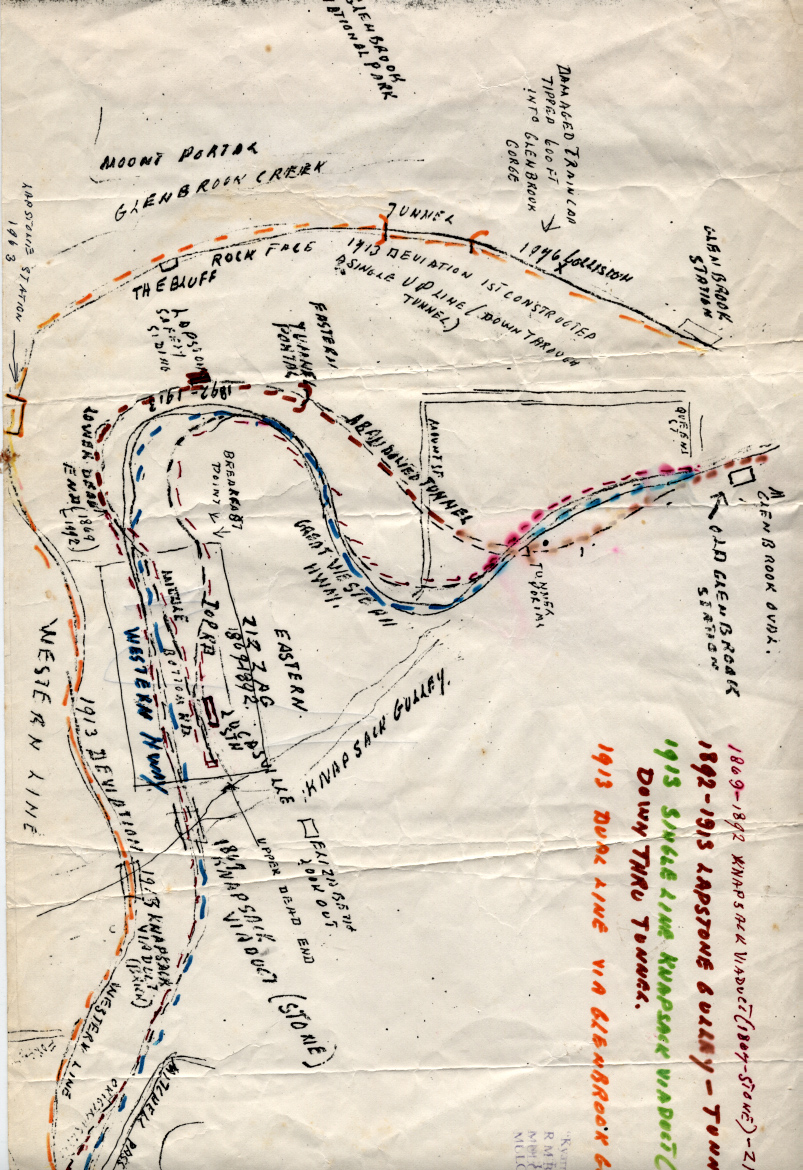 GLENBROOK
NATIONAL PARK
DAMAGED TRAIN CAR
TIPPED 600 FT
INTO GLENBROOK
GORGE
MOUNT PORTAL
GLENBROOK CREEK
LAPSTONE STATION
1963
TUNNEL
ROCK FACE
THE BLUFF
1946 COLLISION
X
GLENBROOK
STATION
1913 DEVIATION 1ST CONSTRUCTED
A SINGLE UP LINE (DOWN THROUGH
TUNNEL)
LAPSTONE
SAFETY
SIDING
1892-1913
EASTERN
TUNNEL
PORTAL
ABANDONED TUNNEL
MOUNT ST
QUEENS
ST.
GLENBROOK OVAL.
OLD GLENBROOK
STATION
TUNNEL
PORTAL
LOWER DEAD
END (1869
1892
BREAKFAST
POINT
GREAT WESTERN
HWAY.
EASTERN.
ZIG ZAG
1869-1892
TOP RD
MIDDLE
BOTTOM RD
WESTERN HWAY
LUCASVILLE
STN
KNAPSACK GULLEY.
ELIZABETH
LOOK OUT
UPPER DEAD END
1867
KNAPSACK
VIADUCT (STONE)
WESTERN LINE
1913 DEVIATION
1913 KNAPSACK
VIADUCT
(BRICK)
WESTERN LINE
ORIGINAL
MITCHELL PASS
1869-1892 KNAPSACK VIADUCT (1867-STONE) - Z
1892-1913 LAPSTONE GULLEY - TUNN
1913 SINGLE LINE KNAPSACK VIADUCT (
DOWN THRU TUNNEL.
1913 DUAL LINE VIA GLENBROOK G